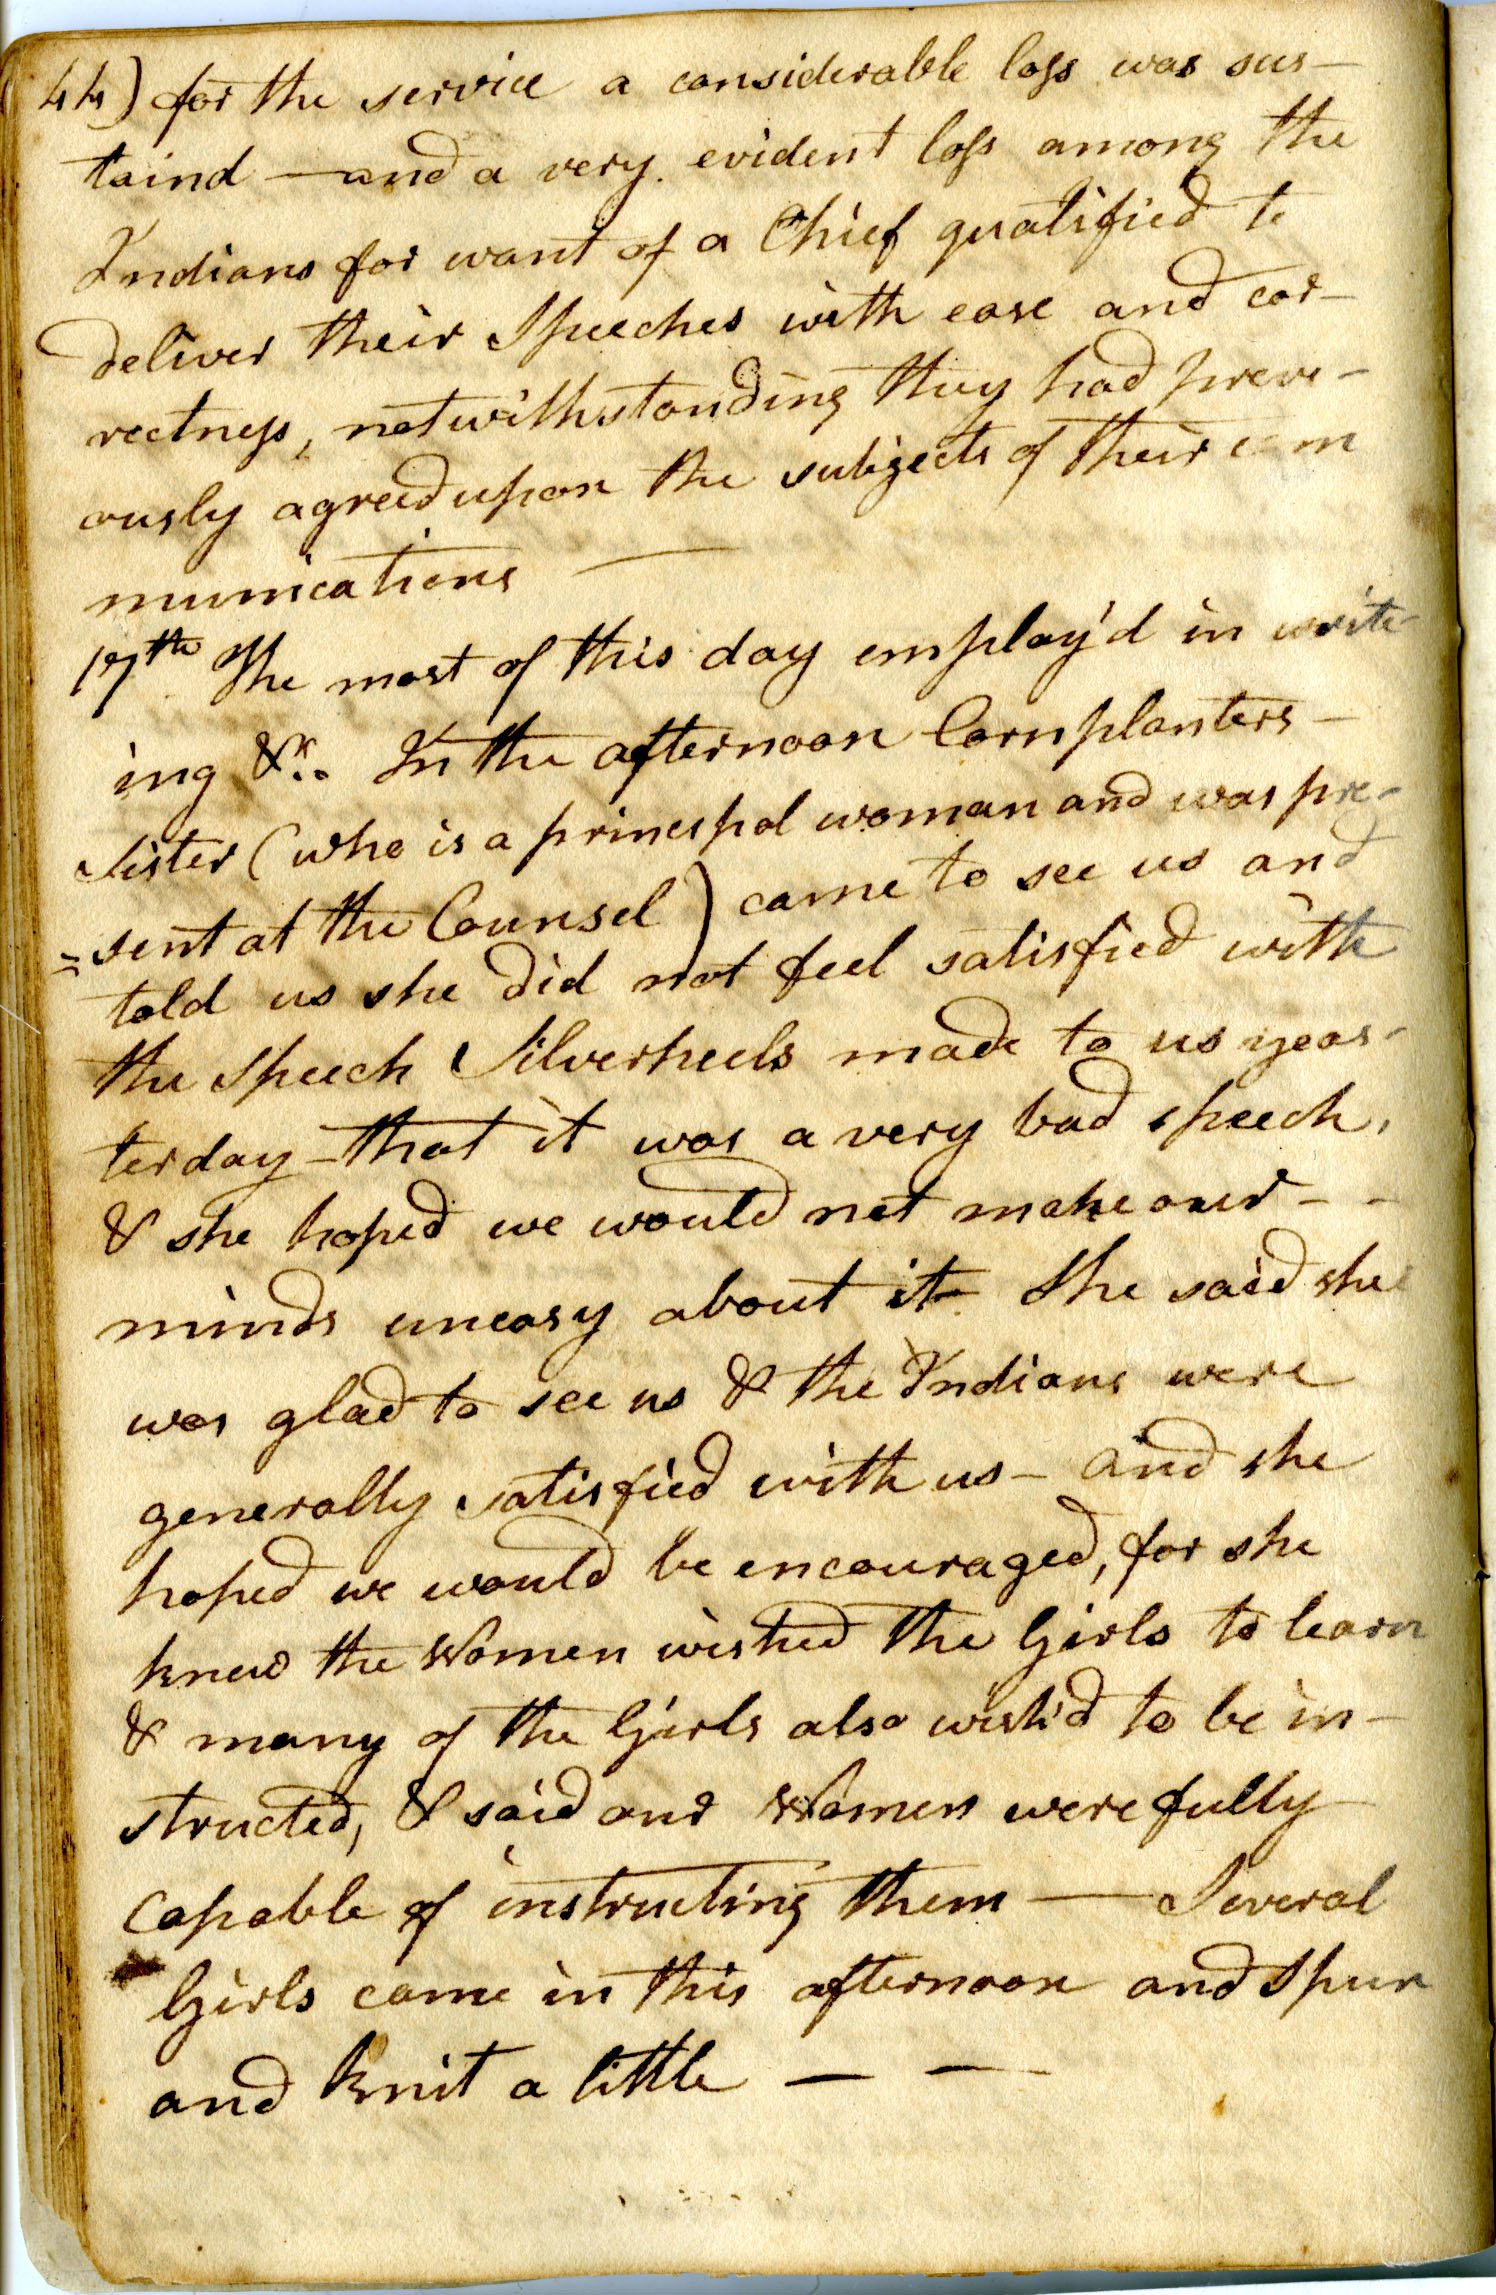 44) for the service a considerable loss was sus-
taind — and a very evident loss among the
Indians for want of a Chief qualified to
deliver their Speeches with ease and cor-
rectness, notwithstanding they had previ-
ously agreed upon the subjects of their com
munications —
17th The most of this day employ'd in write-
ing &c. In the afternoon Cornplanters -
Sister (who is a principal woman and was pre-
=sent at the Counsel) came to see us and
told us she did not feel satisfied with
the Speech Silverheels made to us yeas-
terday - that it was a very bad speech,
& she hoped we would not make our - -
minds uneasy about it - She said she
was glad to see us & the Indians were
generally satisfied with us - and she
hoped we would be encouraged, for she
knew the Women wished the Girls to learn
& many of the Girls also wish'd to be in-
structed, & said our Women were fully
capable of instructing them — Several
Girls came in this afternoon and Spun
and knit a little — —